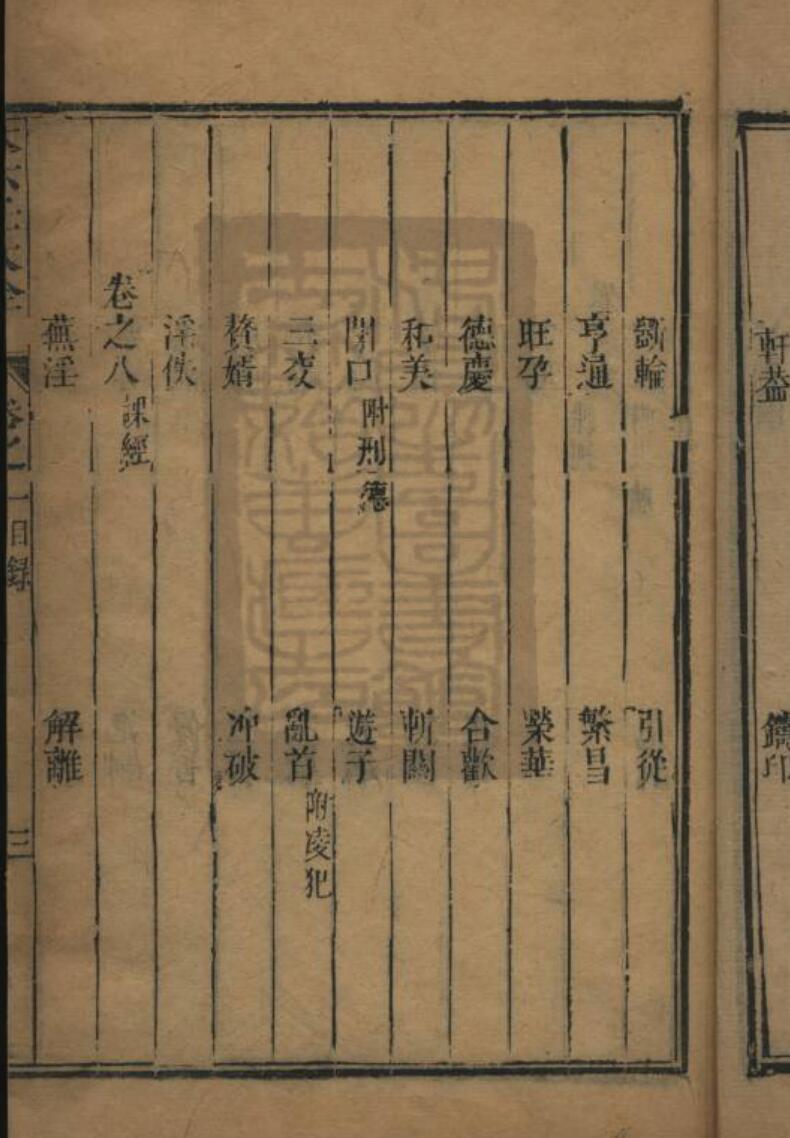 軒蓋
鑄印
斵輪
引從
亨通
繁昌
旺孕
榮華
德慶
合歡
和美
斬關
閉口附刑德
遊子
三交
亂首附凌犯
贅婿
冲破
淫佚
卷之八課經
蕪淫
解離
目錄
三